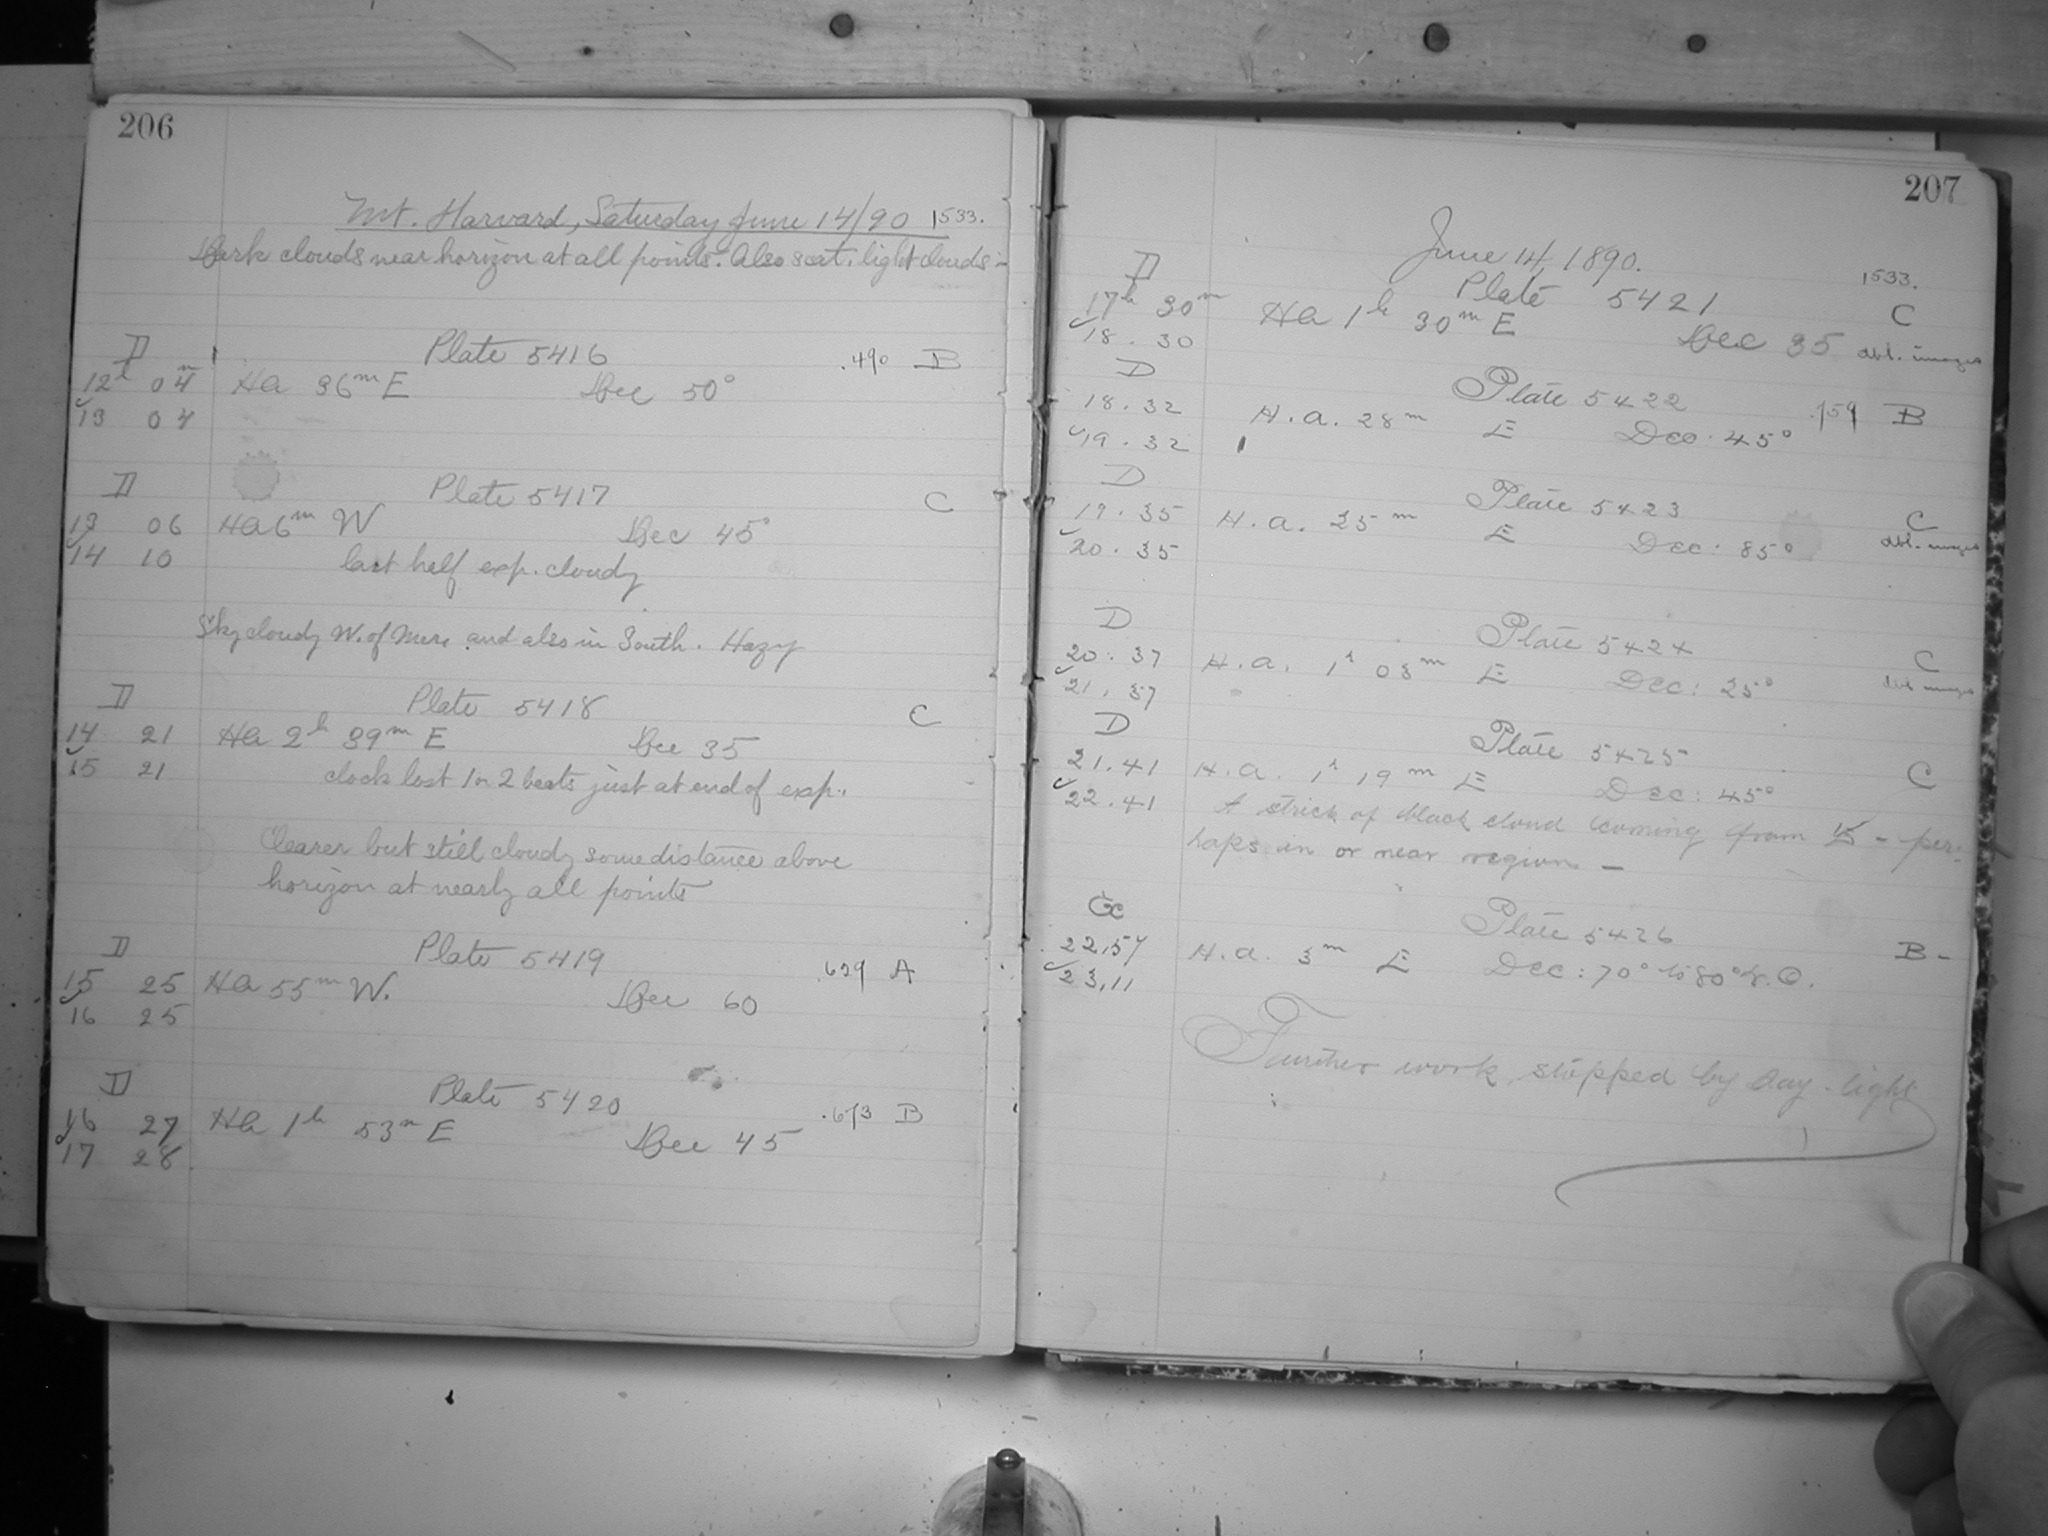 206
Mt. Harvard, Saturday June 14/90 1533.
Dark clouds near horizon at all points. Also scat. light clouds -
D Plate 5416 .490 B
12h 04m Ha 36m E Dec 50°
13 04
D Plate 5417 C
13 06 Ha 6m W Dec 45°
14 10 last half exp. cloudy
Sky cloudy W. of Mere and also in South. Hazy
D Plate 5418 C
14 21 Ha 2h 39m E Dec 35
15 21 clock lost 1 or 2 beats just at end of exp.
Clearer but still cloudy some distance above
horizon at nearly all points
D Plate 5419 .629 A
15 25 Ha 55m W. Dec 60
16 25
D Plate 5420 .673 B
16 27 Ha 1h 53m E Dec 45
17 28
207
June 14, 1890. 1533.
D Plate 5421 C
17h 30m Ha 1h 30m E Dec 35 dbl. images
18.30
D Plate 5422 .759 B
18.32 H.a. 28m E Dec. 45°
19.32
D Plate 5423 C
19.35 H.a. 25m E Dec: 85° dbl. images
20.35
D Plate 5424 C
20.37 H.a. 1h 03m E Dec: 25° dbl images
21.37
D Plate 5425 C
21.41 H.a. 1h 19m E Dec: 45°
22.41 A strick of black cloud coming from - per-
haps in or near region -
Plate 5426 B -
22.57 H.a. 3m E Dec: 70° to 80°
23.11
Further work stopped by day-light